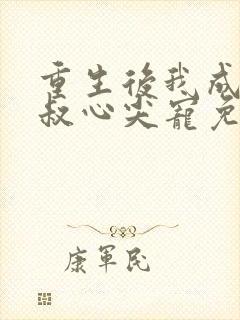 重生後我成
叔心尖寵免
康軍民